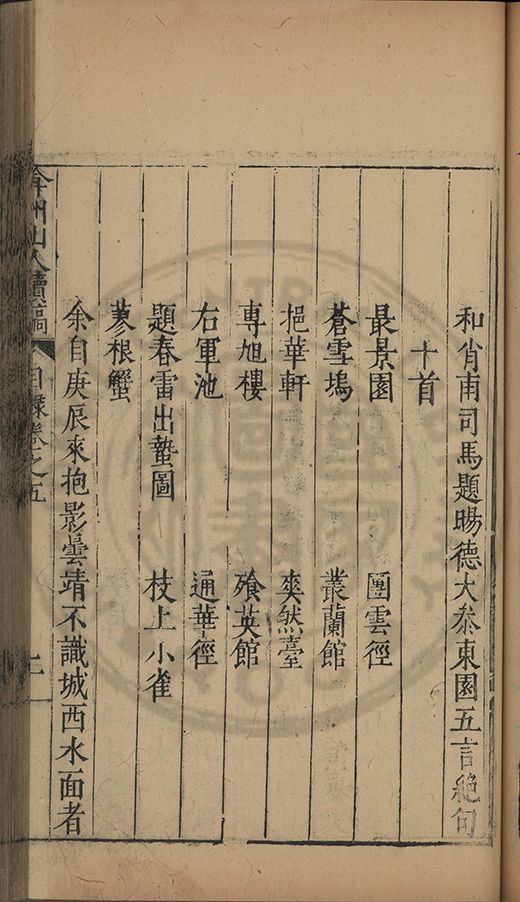 和肖甫司馬題暘德大叅東園五言絕句
十首
最景園 團雲徑
蒼雪塢 叢蘭館
挹華軒 爽然臺
專旭樓 飱英館
右軍池 通華徑
題春雷出蟄圖 枝上小雀
蓼根蟹
余自庚辰來抱影曇靖不識城西水面者
弇州山人續稿 目錄卷之五 二